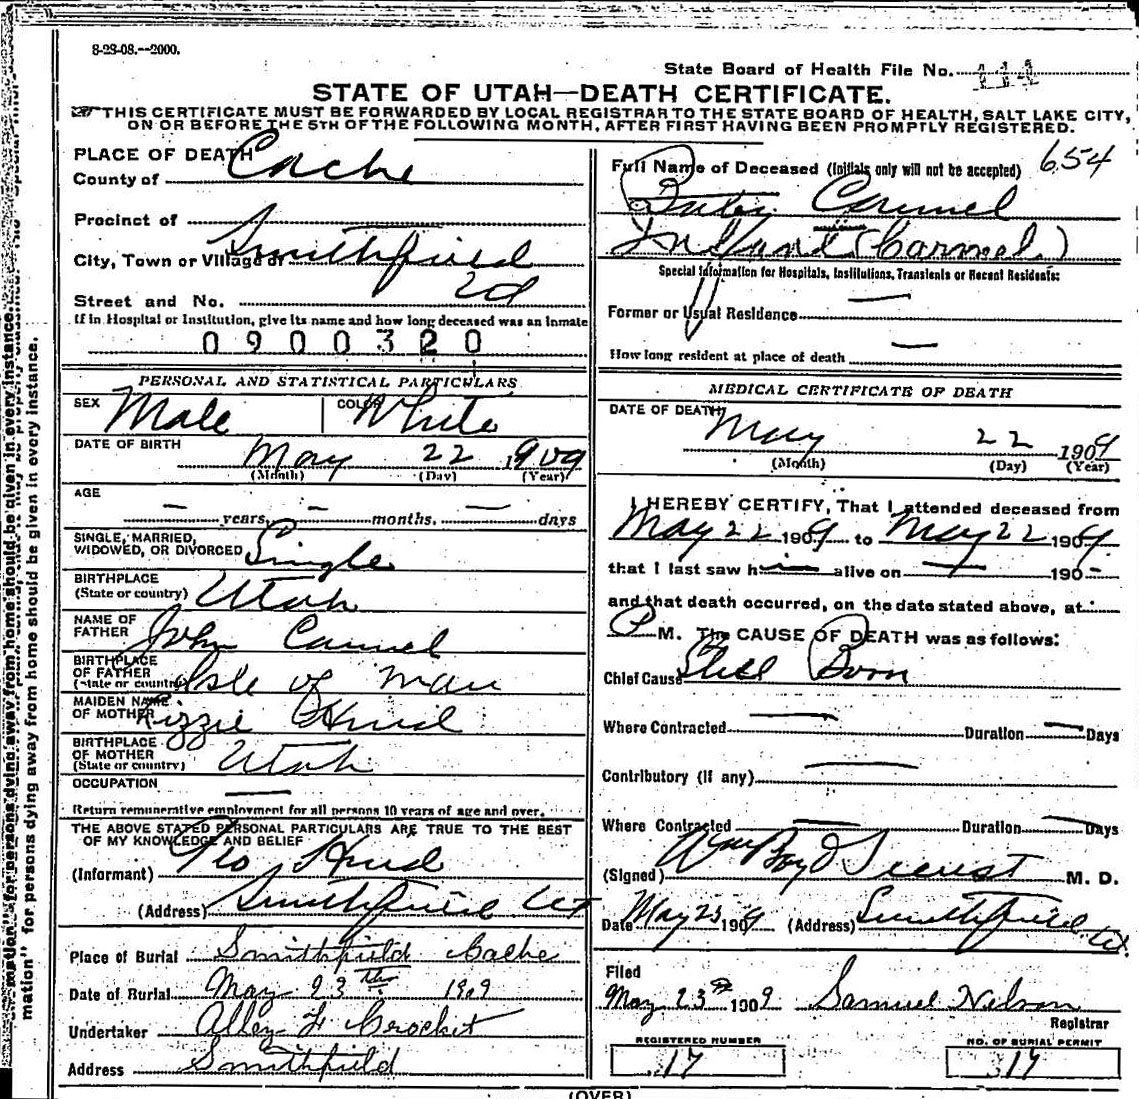 8-28-08.--2000.
State Board of Health File No. 111
STATE OF UTAH—DEATH CERTIFICATE.
THIS CERTIFICATE MUST BE FORWARDED BY LOCAL REGISTRAR TO THE STATE BOARD OF HEALTH, SALT LAKE CITY,
ON OR BEFORE THE 5TH OF THE FOLLOWING MONTH, AFTER FIRST HAVING BEEN PROMPTLY REGISTERED.
PLACE OF DEATH
County of Cache
Precinct of
City, Town or Village of Smithfield
2d
Street and No.
If in Hospital or Institution, give its name and how long deceased was an inmate
0900320
PERSONAL AND STATISTICAL PARTICULARS
SEX Male COLOR White
DATE OF BIRTH May 22 1909
(Month) (Day) (Year)
AGE
— years, — months, — days
SINGLE, MARRIED,
WIDOWED, OR DIVORCED Single
BIRTHPLACE
(State or country) Utah
NAME OF
FATHER John
BIRTHPLACE
OF FATHER
(State or country) Isle of Man
MAIDEN NAME
OF MOTHER Lizzie
BIRTHPLACE
OF MOTHER
(State or country) Utah
OCCUPATION —
Return remunerative employment for all persons 10 years of age and over.
THE ABOVE STATED PERSONAL PARTICULARS ARE TRUE TO THE BEST
OF MY KNOWLEDGE AND BELIEF
(Informant) Geo
(Address) Smithfield Ut
Place of Burial Smithfield Cache
Date of Burial May 23th 1909
Undertaker Crocket
Address Smithfield
654
Full Name of Deceased (Initials only will not be accepted)
Infant (Carmel)
Special Information for Hospitals, Institutions, Transients or Recent Residents:
Former or Usual Residence —
How long resident at place of death —
MEDICAL CERTIFICATE OF DEATH
DATE OF DEATH
May 22 1909
(Month) (Day) (Year)
I HEREBY CERTIFY, That I attended deceased from
May 22 1909 to May 22 1909.
that I last saw h— alive on — 190-
and that death occurred, on the date stated above, at
P M. The CAUSE OF DEATH was as follows:
Chief Cause Still Born
Where Contracted — Duration — Days
Contributory (if any) —
Where Contracted — Duration — Days
(Signed) M. D.
Date May 23 1909 (Address) Smithfield Ut.
Filed
May 23d 1909 Samuel Nelson
Registrar
REGISTERED NUMBER
17
NO. OF BURIAL PERMIT
17
(OVER)
mation" for persons dying away from home should be given in every instance.